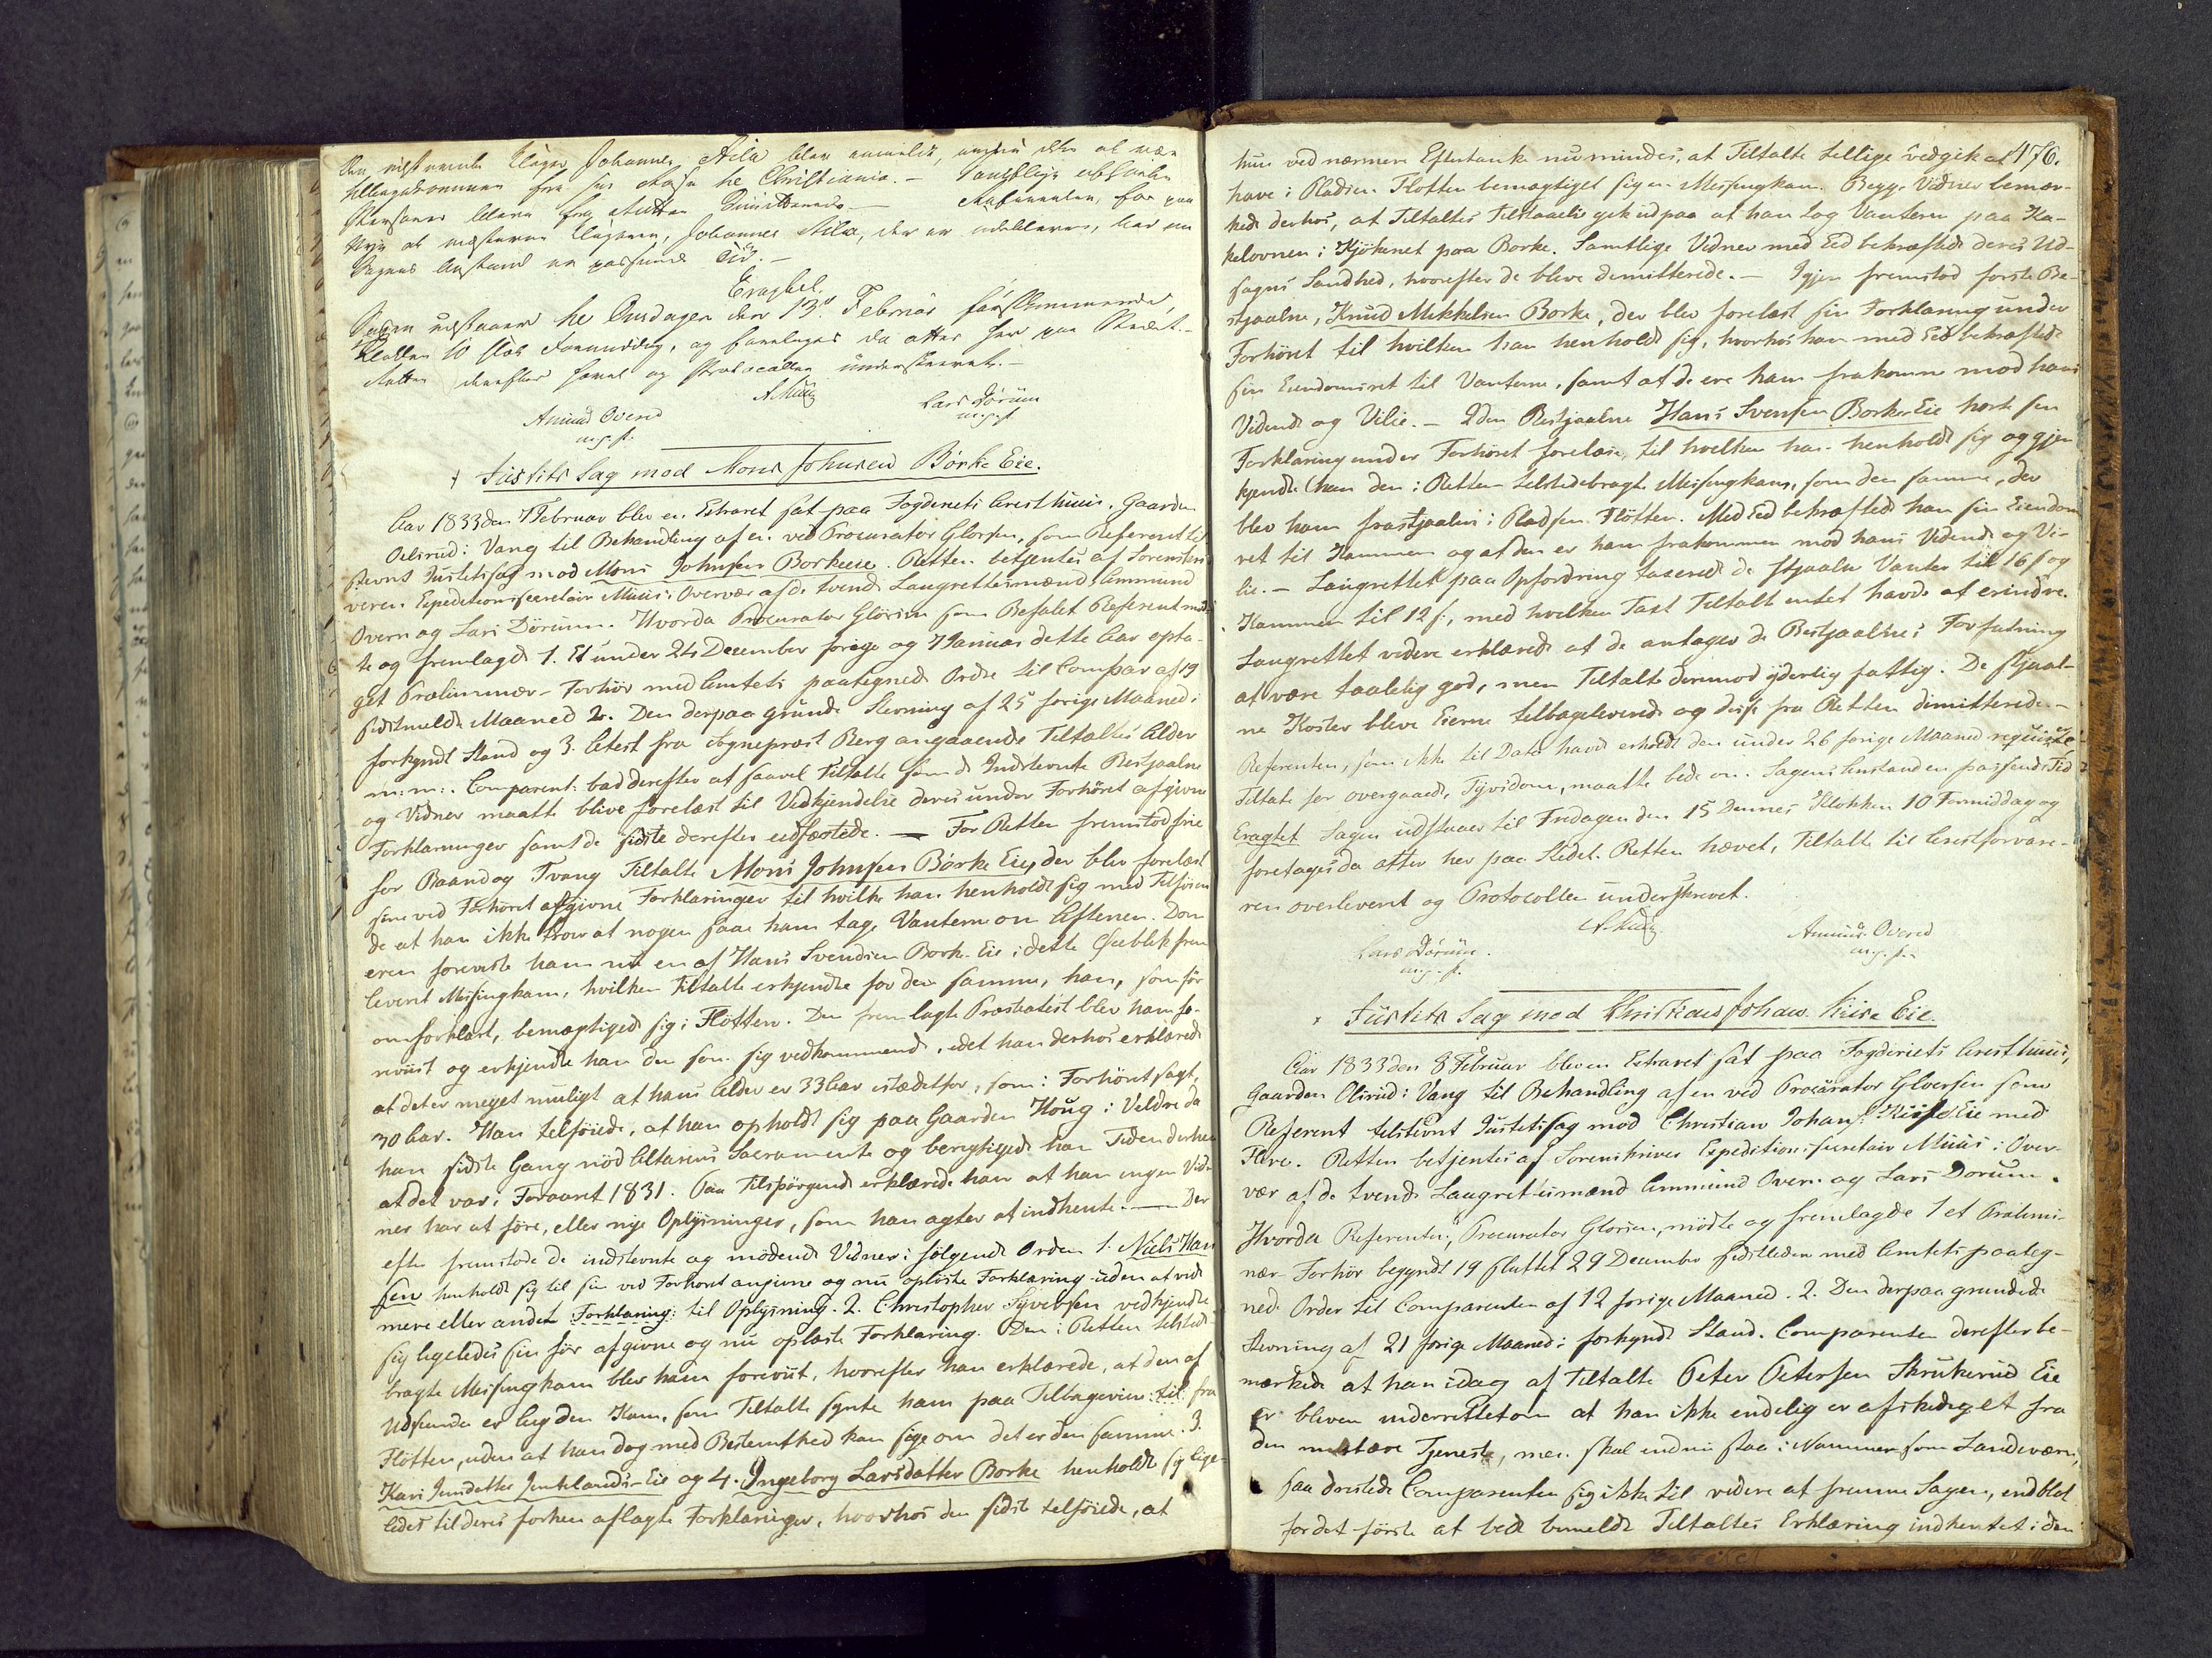 udeblevne Klager Johannes Aila blev anmeldt, endnu ikke at være
tilbagekommen fra sin Reise til Christiania. — Samtlige afhørte
Personer bleve fra Retten dimitterede. — Referenten bad paa
Grund af udeblevne Klageren, Johannes Aila, der er udebleven, bad om
Sagens Anstand en passende Tid. —
Eragtet
Sagen udstaaer til Onsdagen den 13de Februar førstkommende
Klokken 10 slet Formiddag, og foretages da atter her paa Stedet. —
Retten derefter hævet og Protocollen underskrevet. —
AMuus
Amund Overn
m.p.p.
Lars Dørum
m.p.p.
† Justits Sag mod Mons Johnsen Børke Eie.
Aar 1833 den 7 Februar blev en Extraret sat paa Fogderiets Aresthuus, Gaarden
Olsrud i Vang til Behandling af en ved Procurator Glørsen, som Referent til-
stevnt Justitssag mod Mons Johnsen Borkeeie. Retten betjentes af Sorenskri-
veren Expeditionssecretair Muus i Overvær af de tvende Laugrettesmænd Ammund
Overn og Lars Dörum. Hvorda Procurator Glörsen som Befalet Referent mød-
te og fremlagde 1. Et under 24 December forige og 7 Januar dette Aar opta-
get Præliminær-Forhör med Amtets paategnede Ordre til Compar. af 19
sidstmeldte Maaned 2. Den derpaa grundede Stevning af 25 forige Maaned i
forkyndt Stand og 3. Attest fra Sognepræst Berg angaaende Tiltaltes Alder
m:m:. Comparent: bad derefter at saavel Tiltalte som de Indstevnte Bestjaalne
og Vidner maatte blive forelæst til Vedkjendelse deres under Forhöret afgivne
Forklaringer samt de sidste derefter edfæstede. — For Retten fremstod frie
for Baand og Tvang Tiltalte Mons Johnsen Börke Eie, der blev forelæst
sine ved Forhöret afgivne Forklaringer til hvilke han henholdt sig med Tilföien-
de at han ikke troer at nogen saae ham tage Vanterne om Aftenen. Dom-
eren foreviste ham nu en af Hans Svendsen Borke Eie i dette Öieblik frem-
leveret Messingkam, hvilken Tiltalte erkjendte for den samme, han, som för
omforklart, bemægtigede sig i Flötten. Den fremlagte Præsteattest blev ham fo-
reviist og erkjendte han den som sig vedkommende, idet han derhos erklærede
at det er meget muligt at hans Alder er 33 Aar istædetfor, som i Forhöret sagt,
30 Aar. Han tilföiede, at han opholdt sig paa Gaarden Houg i Veldre da
han sidste Gang nöd Altarens Sacramente og berigtigede han Tiden derhen
at det var i Foraaret 1831. Paa Tilspörgende erklærede han at han ingen Vid-
ner har at före, eller nye Oplysninger, som han agter at indhente. — Der-
efter fremstode de indstevnte og mödende Vidner i fölgende Orden 1. Niels Han-
sen henholdt sig til sin ved Forhöret angivne og nu oplæste Forklaring uden at vide
mere eller andet Forklaring: til Oplysning. 2. Christopher Syversen vedkjendte
sig ligeledes sin för afgivne og nu oplæste Forklaring. Den i Retten tilstede-
bragte Messingkam blev ham foreviist, hvorefter han erklærede, at den af
Udseende er liig den Kam, som Tiltalte synte ham paa Tilbageveien :til: fra
Flötten, uden at han dog med Bestemthed kan sige om det er den samme. 3.
Kari Jensdatter Jenklands-Eie og 4. Ingeborg Larsdatter Borke henholdt sig lige-
ledes til deres forhen aflagte Forklaringer, hvorhos den sidste tilföiede, at
176.
hun ved nærmere Eftertanke nu mindes, at Tiltalte tillige vedgik at
have i Pladsen Flotten bemægtiget sig en Messingkam. Begge Vidner bemær-
kede derhos, at Tiltaltes Tilstaaelse gik ud paa at han tog Vanterne paa Ka-
kelovnen i Kjökenet paa Borke. Samtlige Vidner med Eed bekræftede deres Ud-
sagns Sandhed, hvorefter de bleve dimitterede. — Igjen fremstod förste Be-
stjaalne, Knud Mikkelsen Borke, der blev forelæst sin Forklaring under
Forhöret til hvilken han henholdt sig, hvorhos han med Eed bekræftede
sin Eiendomsret til Vanterne, samt at de ere ham frakomne mod hans
Vidende og Vilie. — 2den Bestjaalne Hans Svensen Borke Eie hørte sin
Forklaring under Forhöret forelæse, til hvilken han henholdt sig og gjen-
kjendte han den i Retten tilstedebragte Messingkam, som den samme, der
blev ham frastjaalen i Pladsen Flötten. Med Eed bekræftede han sin Eiendoms-
ret til Kammen og at den er ham frakommen mod hans Vidende og Vi-
lie. — Laugrettet paa Opfordring taxerede de stjaalne Vanter til 16 s og
Kammen til 12 s, med hvilken Taxt Tiltalte intet havde at erindre.
Laugrettet videre erklærede at de antager de Bestjaalnes Forfatning
at være taalelig god, men Tiltalte derimod yderlig fattig. De stjaal-
ne Koster bleve Eierne tilbageleverede og disse fra Retten dimitterede. —
Referenten, som ikke til Dato havde erholdt den under 26 forige Maaned requirerede
Tiltalte før overgaaede Tyvsdom, maatte bede om Sagens Anstand en passende Tid
Eragtet Sagen udstaaer til Fredagen den 15 Dennes Klokken 10 Formiddag og
foretages da atter her paa Stedet. Retten hævet, Tiltalte til Arestforvare-
ren overleveret og Protocollen underskrevet.
AMuus
Lars Dörum
m.p.p.
Amund Overn
m.p.p.
† Justits Sag mod Christian Johans. Kiise Eie.
Aar 1833 den 8 Februar blev en Extraret sat paa Fogderiets Aresthuus,
Gaarden Olsrud i Vang til Behandling af en ved Procurator Gloersen som
Referent tilstevnt Justitssag mod Christian Johans: Kiise Eie med
Flere. Retten betjentes af Sorenskriver Expeditionssecretair Muus i Over-
vær af de tvende Laugrettesmænd Ammund Overn og Lars Dorum.
Hvorda Referenten, Procurator Glorsen, mödte og fremlagde 1 et Prælimi-
nær-Forhör begyndt 19 sluttet 29 December sidstleden med Amtets paateg-
nede Ordre til Comparenten af 12 forige Maaned. 2. Den derpaa grundede
Stevning af 21 forige Maaned i forkyndt Stand. Comparenten derefter be-
mærkede at han idag af Tiltalte Peter Petersen Skrukerud Eie
er bleven underrettet om at han ikke endelig er afskediget fra
den militære Tjeneste, men skal endnu staae i Nummer som Landeværn,
saa dristede Comparenten sig ikke til videre at fremme Sagen, end blot
for det förste at bede bemeldte Tiltaltes Erklæring indhentet i den